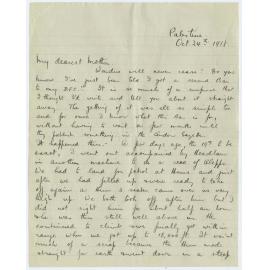 Palestine
Oct 24th 1918
My dearest Mother
Wonders will never cease! Do you
know I've just been told I got a second Bar
to my D.F.C. It is so much of a surprise that
I thought I'd write and tell you about it straight
away. The getting of it was all so simple too
and for once I know what the Bar is for,
without having to wait a few months until
they publish something in the London Gazette.
It happened thus. A few days ago, the 19th to be
exact, I went out accompanied by Headlam
in another machine to do a recce of Aleppo.
We had to land for petrol at Homs and just
after we had filled up & were ready to take
off again a hun 2 seater came over us very
high up. We both took off after him but I
did not sight him for about half an hour
she was then still well above us. We
continued to climb & finally got within
range when we got up to 10,000 ft. It wasn't
much of a scrap because the Hun made
straight for earth & went down in a steep